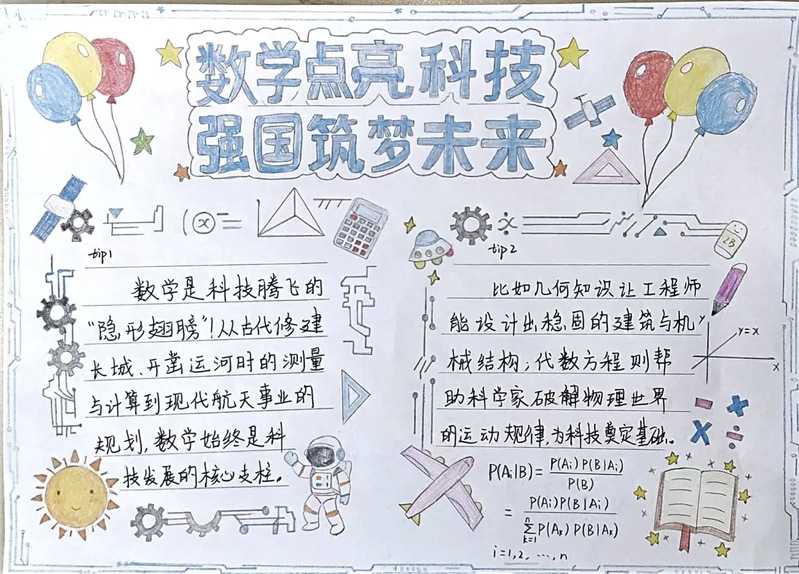 数学点亮科技
强国筑梦未来
tip1
数学是科技腾飞的
“隐形翅膀”!从古代修建
长城、开凿运河时的测量
与计算到现代航天事业的
规划,数学始终是科
技发展的核心支柱。
tip2
比如几何知识让工程师
能设计出稳固的建筑与机
械结构;代数方程则帮
助科学家破解物理世界
的运动规律,为科技奠定基础。
y
y=x
x
2B
P(Ai|B)= P(Ai)P(B|Ai) / P(B)
= P(Ai)P(B|Ai) / ∑_{k=1}^{n} P(Ak)P(B|Ak)
i=1,2, …,n